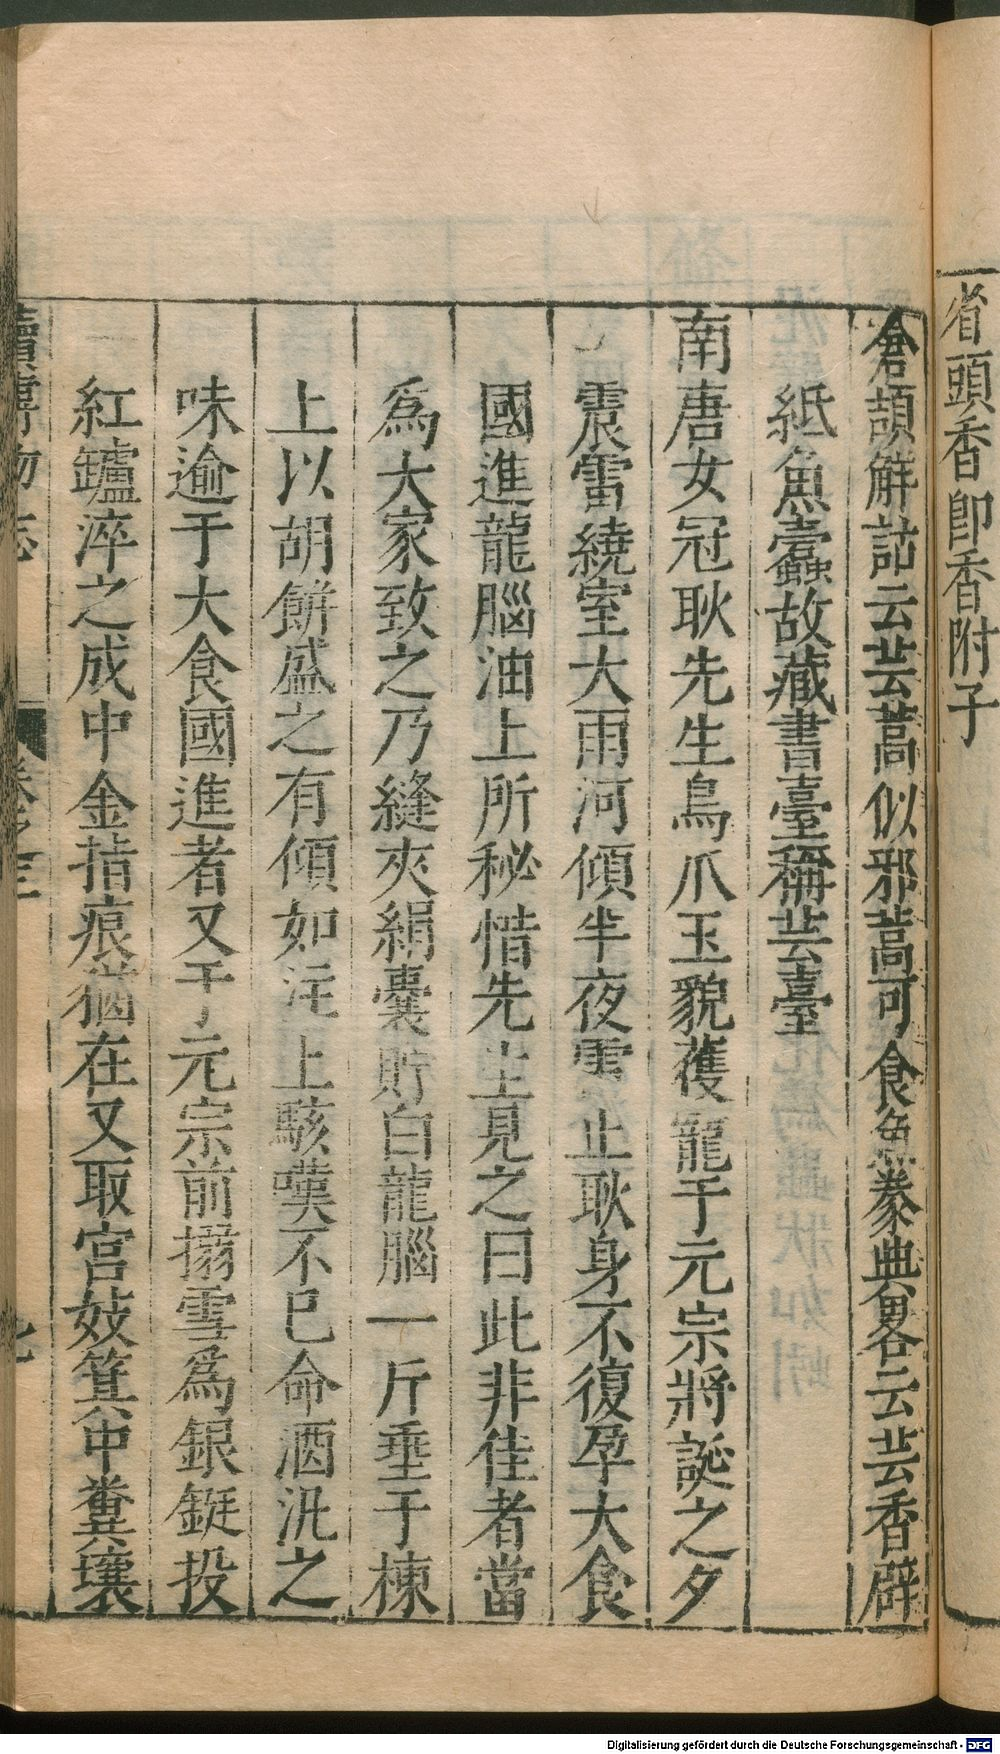 省頭香即香附子
倉頡解詁云芸蒿似邪蒿可食魚豢典畧云芸香辟
紙魚蠹故藏書臺稱芸臺
南唐女冠耿先生鳥爪玉貌獲寵于元宗將誕之夕
震雷繞室大雨河傾半夜雷止耿身不復孕大食
國進龍腦油上所秘惜先生見之曰此非佳者當
為大家致之乃縫夾絹囊貯白龍腦一斤垂于棟
上以胡餅盛之有傾如注上駭嘆不已命酒汎之
味逾于大食國進者又于元宗前搦雪為銀鋌投
紅鑪淬之成中金指痕猶在又取宮妓箕中糞壤
續博物志 卷之三 七
Digitalisierung gefördert durch die Deutsche Forschungsgemeinschaft - DFG